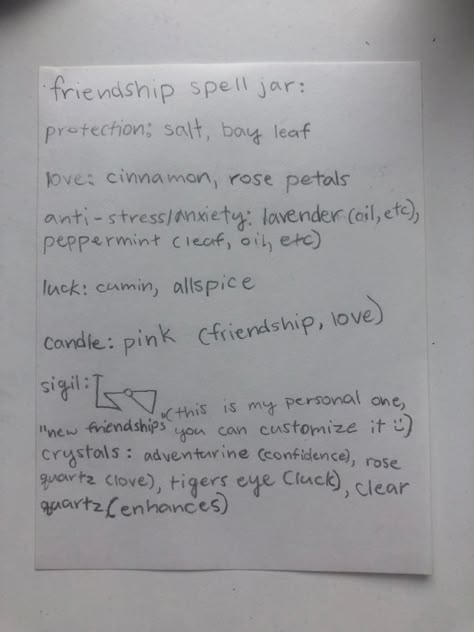 friendship spell jar:
protection: salt, bay leaf
love: cinnamon, rose petals
anti-stress/anxiety: lavender (oil, etc),
peppermint (leaf, oil, etc)
luck: cumin, allspice
candle: pink (friendship, love)
sigil:
"new friendships" (this is my personal one,
you can customize it :)
crystals: adventurine (confidence), rose
quartz (love), tigers eye (luck), clear
quartz (enhances)